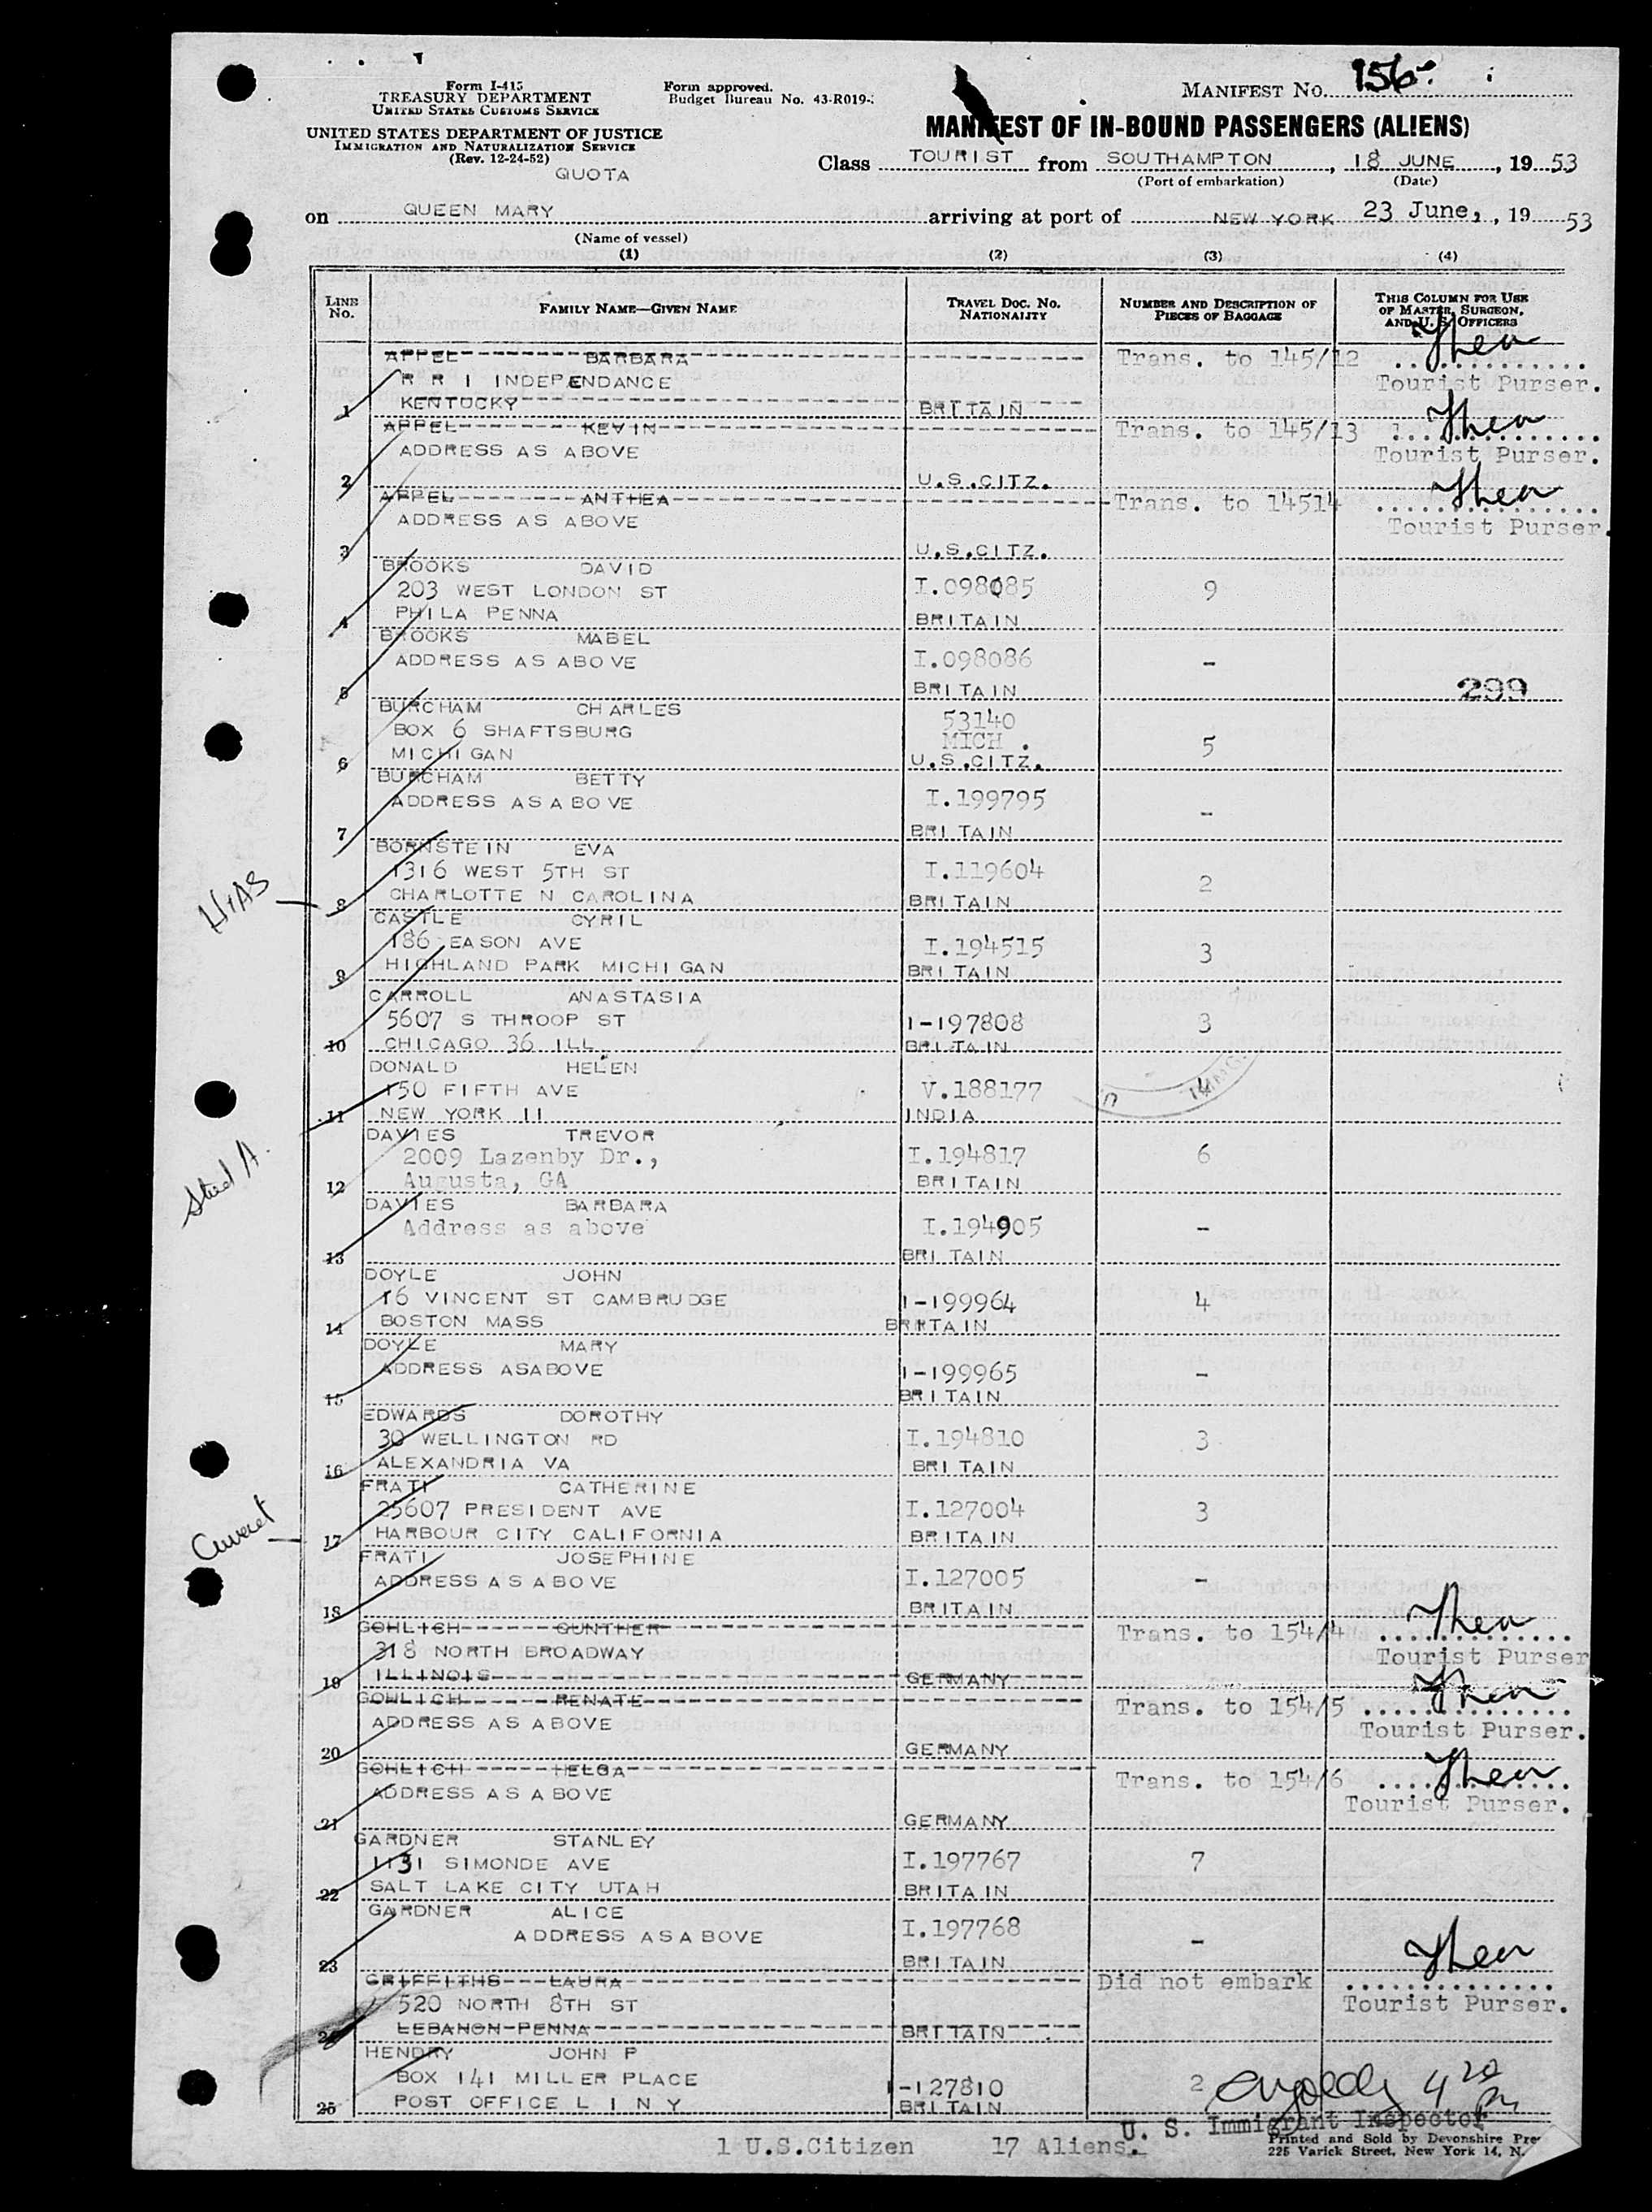 Form I-415
TREASURY DEPARTMENT
UNITED STATES CUSTOMS SERVICE
UNITED STATES DEPARTMENT OF JUSTICE
IMMIGRATION AND NATURALIZATION SERVICE
(Rev. 12-24-52)
QUOTA
Form approved.
Budget Bureau No. 43-R019-
MANIFEST No. 156
MANIFEST OF IN-BOUND PASSENGERS (ALIENS)
Class TOURIST from SOUTHAMPTON, 18 JUNE, 19 53
(Port of embarkation) (Date)
on QUEEN MARY arriving at port of NEW YORK 23 June, , 19 53
(Name of vessel)
(1) (2) (3) (4)
LINE No. FAMILY NAME—GIVEN NAME TRAVEL DOC. No. NATIONALITY NUMBER AND DESCRIPTION OF PIECES OF BAGGAGE THIS COLUMN FOR USE OF MASTER, SURGEON, AND U. S. OFFICERS
APPEL BARBARA Trans. to 145/12
R R 1 INDEPENDANCE Tourist Purser.
1 KENTUCKY BRITAIN
APPEL KEVIN Trans. to 145/13
ADDRESS AS ABOVE Tourist Purser.
2 U.S.CITZ.
APPEL ANTHEA Trans. to 14514
ADDRESS AS ABOVE Tourist Purser.
3 U.S.CITZ.
BROOKS DAVID
203 WEST LONDON ST I.098085 9
4 PHILA PENNA BRITAIN
BROOKS MABEL
ADDRESS AS ABOVE I.098086 -
5 BRITAIN 299
BURCHAM CHARLES 53140
BOX 6 SHAFTSBURG MICH . 5
6 MICHIGAN U.S.CITZ.
BURCHAM BETTY
ADDRESS AS ABOVE I.199795 -
7 BRITAIN
BORNSTEIN EVA
1316 WEST 5TH ST I.119604 2
HIAS 8 CHARLOTTE N CAROLINA BRITAIN
CASTLE CYRIL
186 EASON AVE I.194515 3
9 HIGHLAND PARK MICHIGAN BRITAIN
CARROLL ANASTASIA
5607 S THROOP ST I-197808 3
10 CHICAGO 36 ILL BRITAIN
DONALD HELEN
150 FIFTH AVE V.188177 4
11 NEW YORK 11 INDIA
DAVIES TREVOR
2009 Lazenby Dr., I.194817 6
12 Augusta, GA BRITAIN
DAVIES BARBARA
Address as above I.194905 -
13 BRITAIN
DOYLE JOHN
16 VINCENT ST CAMBRUDGE I-199964 4
14 BOSTON MASS BRITAIN
DOYLE MARY
ADDRESS ASABOVE I-199965 -
15 BRITAIN
EDWARDS DOROTHY
30 WELLINGTON RD I.194810 3
16 ALEXANDRIA VA BRITAIN
FRATI CATHERINE
25607 PRESIDENT AVE I.127004 3
17 HARBOUR CITY CALIFORNIA BRITAIN
FRATI JOSEPHINE
ADDRESS AS ABOVE I.127005 -
18 BRITAIN
GOHLICH GUNTHER Trans. to 154/4
318 NORTH BROADWAY Tourist Purser
19 ILLINOIS GERMANY
GOHLICH RENATE Trans. to 154/5
ADDRESS AS ABOVE Tourist Purser.
20 GERMANY
GOHLICH HELGA Trans. to 154/6
ADDRESS AS ABOVE Tourist Purser.
21 GERMANY
GARDNER STANLEY
1131 SIMONDE AVE I.197767 7
22 SALT LAKE CITY UTAH BRITAIN
GARDNER ALICE
ADDRESS ASABOVE I.197768 -
23 BRITAIN
GRIFFITHS LAURA Did not embark
520 NORTH 8TH ST Tourist Purser.
24 LEBANON PENNA BRITAIN
HENDRY JOHN P
BOX 141 MILLER PLACE I-127810 2
25 POST OFFICE L I N Y BRITAIN
U. S. Immigrant Inspector
1 U.S.Citizen 17 Aliens.
Printed and Sold by Devonshire Pre
225 Varick Street, New York 14, N.